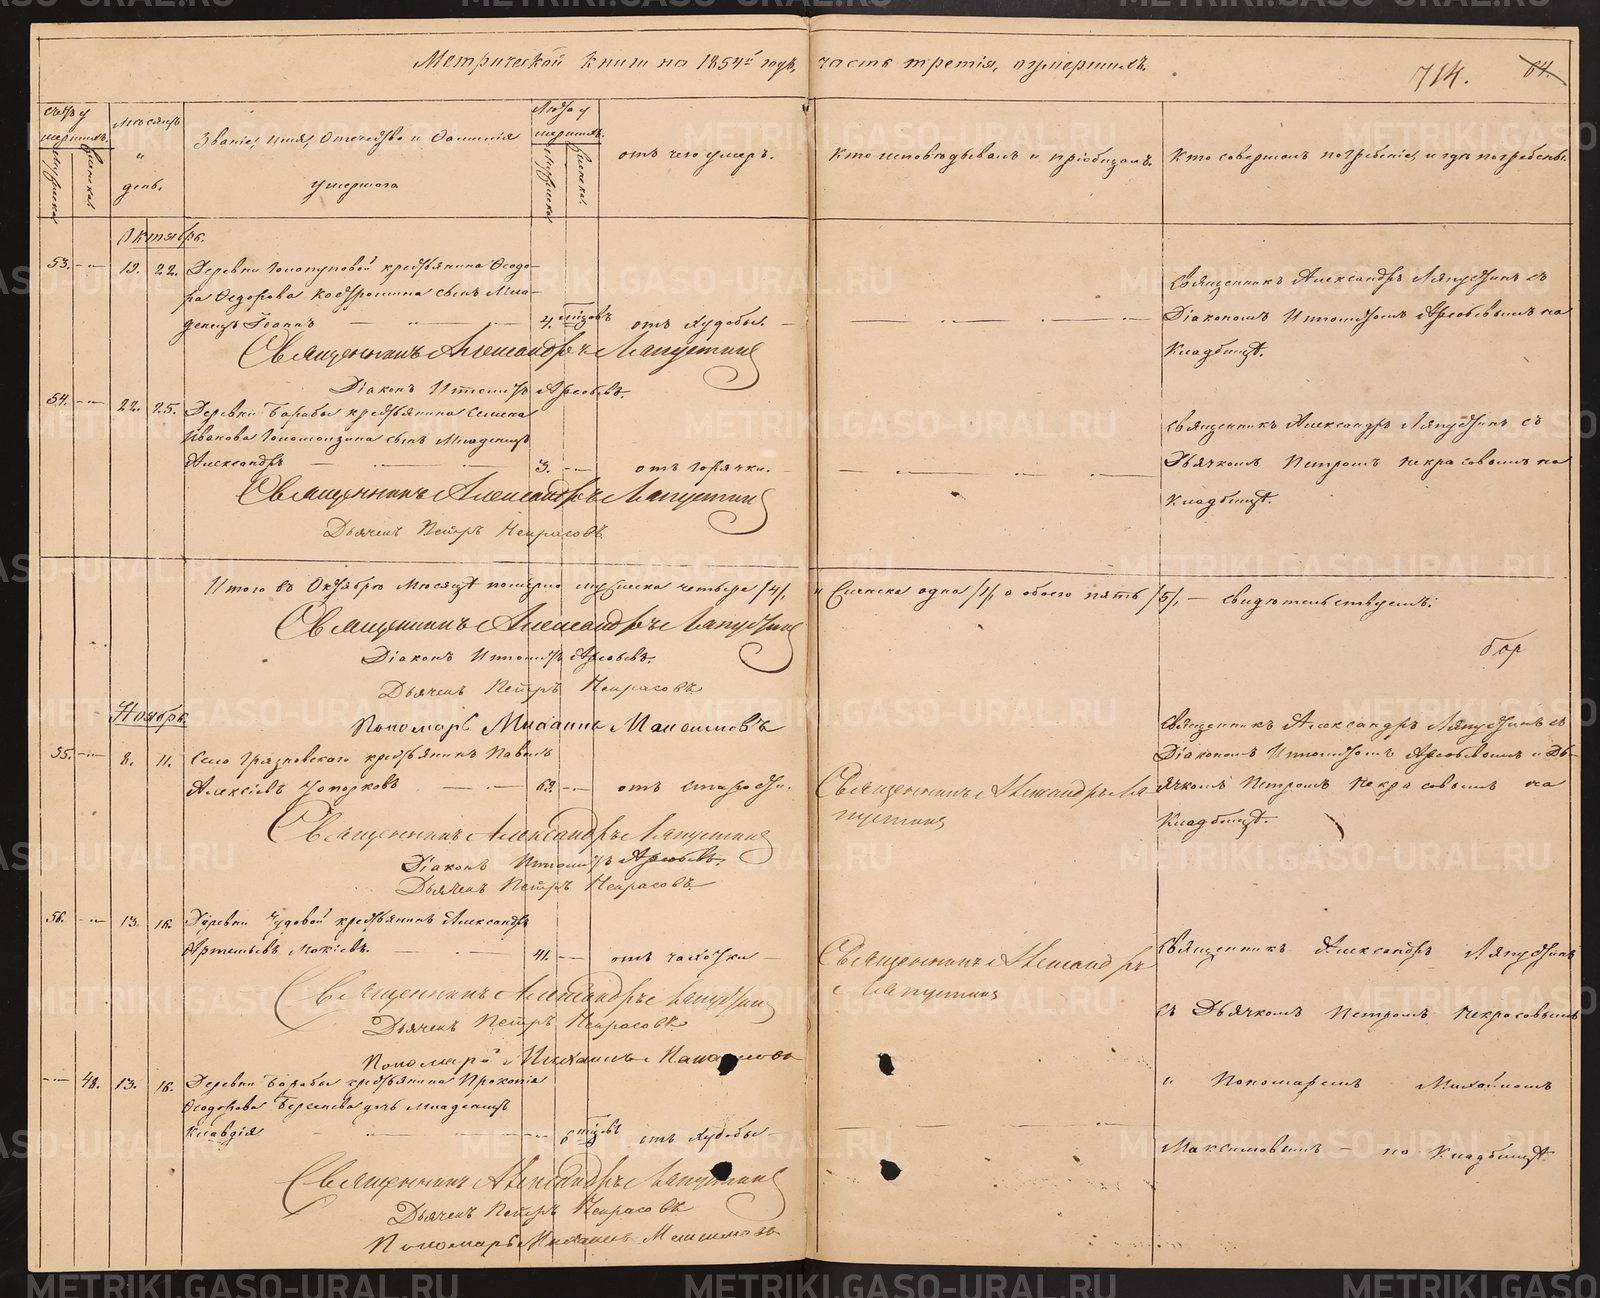 Метрической книги на 1854й годъ, часть третія, о умершихъ.
714.
64.
Счетъ умершихъ.
Мужеска
Женска
Мѣсяцъ и день.
Званіе, имя, отечество и фамилія умершаго
Лѣта умершихъ.
Мужеска
Женска
отъ чего умеръ.
Кто исповѣдывалъ и пріобщалъ.
Кто совершалъ погребеніе, и гдѣ погребены.
Октябрь.
53. 19. 22. Деревни крестьянина Ѳеодо-
ра Ѳедорова сынъ Мла-
денецъ Іоаннъ 4. отъ худобы.
Священникъ Александръ Ляпустинъ съ
Діакономъ на
Кладбищѣ.
Священникъ Александръ Ляпустинъ
Діаконъ
54. 22. 25. Деревни Барабы крестьянина Семена
Иванова сынъ Младенецъ
Александръ 3. отъ горячки.
Священникъ Александръ Ляпустинъ съ
Дьячкомъ Петромъ Некрасовымъ на
Кладбищѣ.
Священникъ Александръ Ляпустинъ
Дьячекъ Петръ Некрасовъ
Итого въ Октябрѣ Мѣсяцѣ померло мужеска четыре /4/, и Женска одна /1/, а обоего пять /5/, — свидѣтельствуемъ:
Священникъ Александръ Ляпустинъ
Діаконъ
Дьячекъ Петръ Некрасовъ
Пономарь Михаилъ Максимовъ
Ноябрь.
55. 8. 11. Села Грязновскаго крестьянинъ Павелъ
Алексѣевъ Топорковъ 69. отъ старости.
Священникъ Александръ Ля
пустинъ
Священникъ Александръ Ляпустинъ съ
Діакономъ и Дь-
ячкомъ Петромъ Некрасовымъ на
Кладбищѣ.
Священникъ Александръ Ляпустинъ
Діаконъ
Дьячекъ Петръ Некрасовъ
56. 13. 16. Деревни Чудовой крестьянинъ Александръ
Артемьевъ Мокѣевъ. 41. отъ чахотки
Священникъ Александръ
Ляпустинъ
Священникъ Александръ Ляпустинъ
съ Дьячкомъ Петромъ Некрасовымъ
и Пономаремъ Михаиломъ
Максимовымъ — на Кладбищѣ.
Священникъ Александръ Ляпустинъ
Дьячекъ Петръ Некрасовъ
Пономарь Михаилъ Максимовъ
48. 13. 16. Деревни Барабы крестьянина Прокопія
Ѳеодорова Берсенева дочь младенецъ
Клавдія 6 отъ худобы
Священникъ Александръ Ляпустинъ
Дьячекъ Петръ Некрасовъ
Пономарь Михаилъ Максимовъ
METRIKI.GASO-URAL.RU